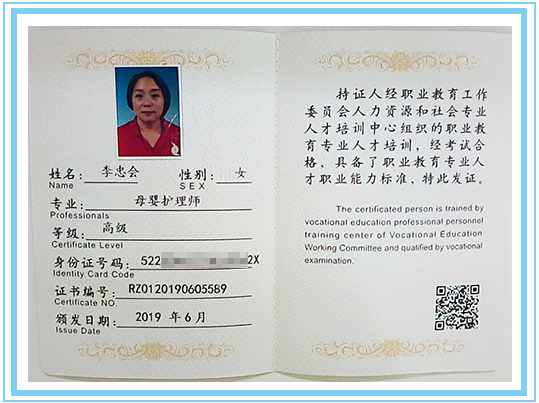 姓名: 李忠会 性别: 女
Name SEX
专业: 母婴护理师
Professionals
等级: 高级
Certificate Level
身份证号码: 522 2X
Identity Card Code
证书编号: RZ0120190605589
Certificate NO.
颁发日期: 2019 年 6 月
Issue Date
持证人经职业教育工作
委员会人力资源和社会专业
人才培训中心组织的职业教
育专业人才培训，经考试合
格，具备了职业教育专业人
才职业能力标准，特此发证。
The certificated person is trained by
vocational education professional personnel
training center of Vocational Education
Working Committee and qualified by vocational
examination.